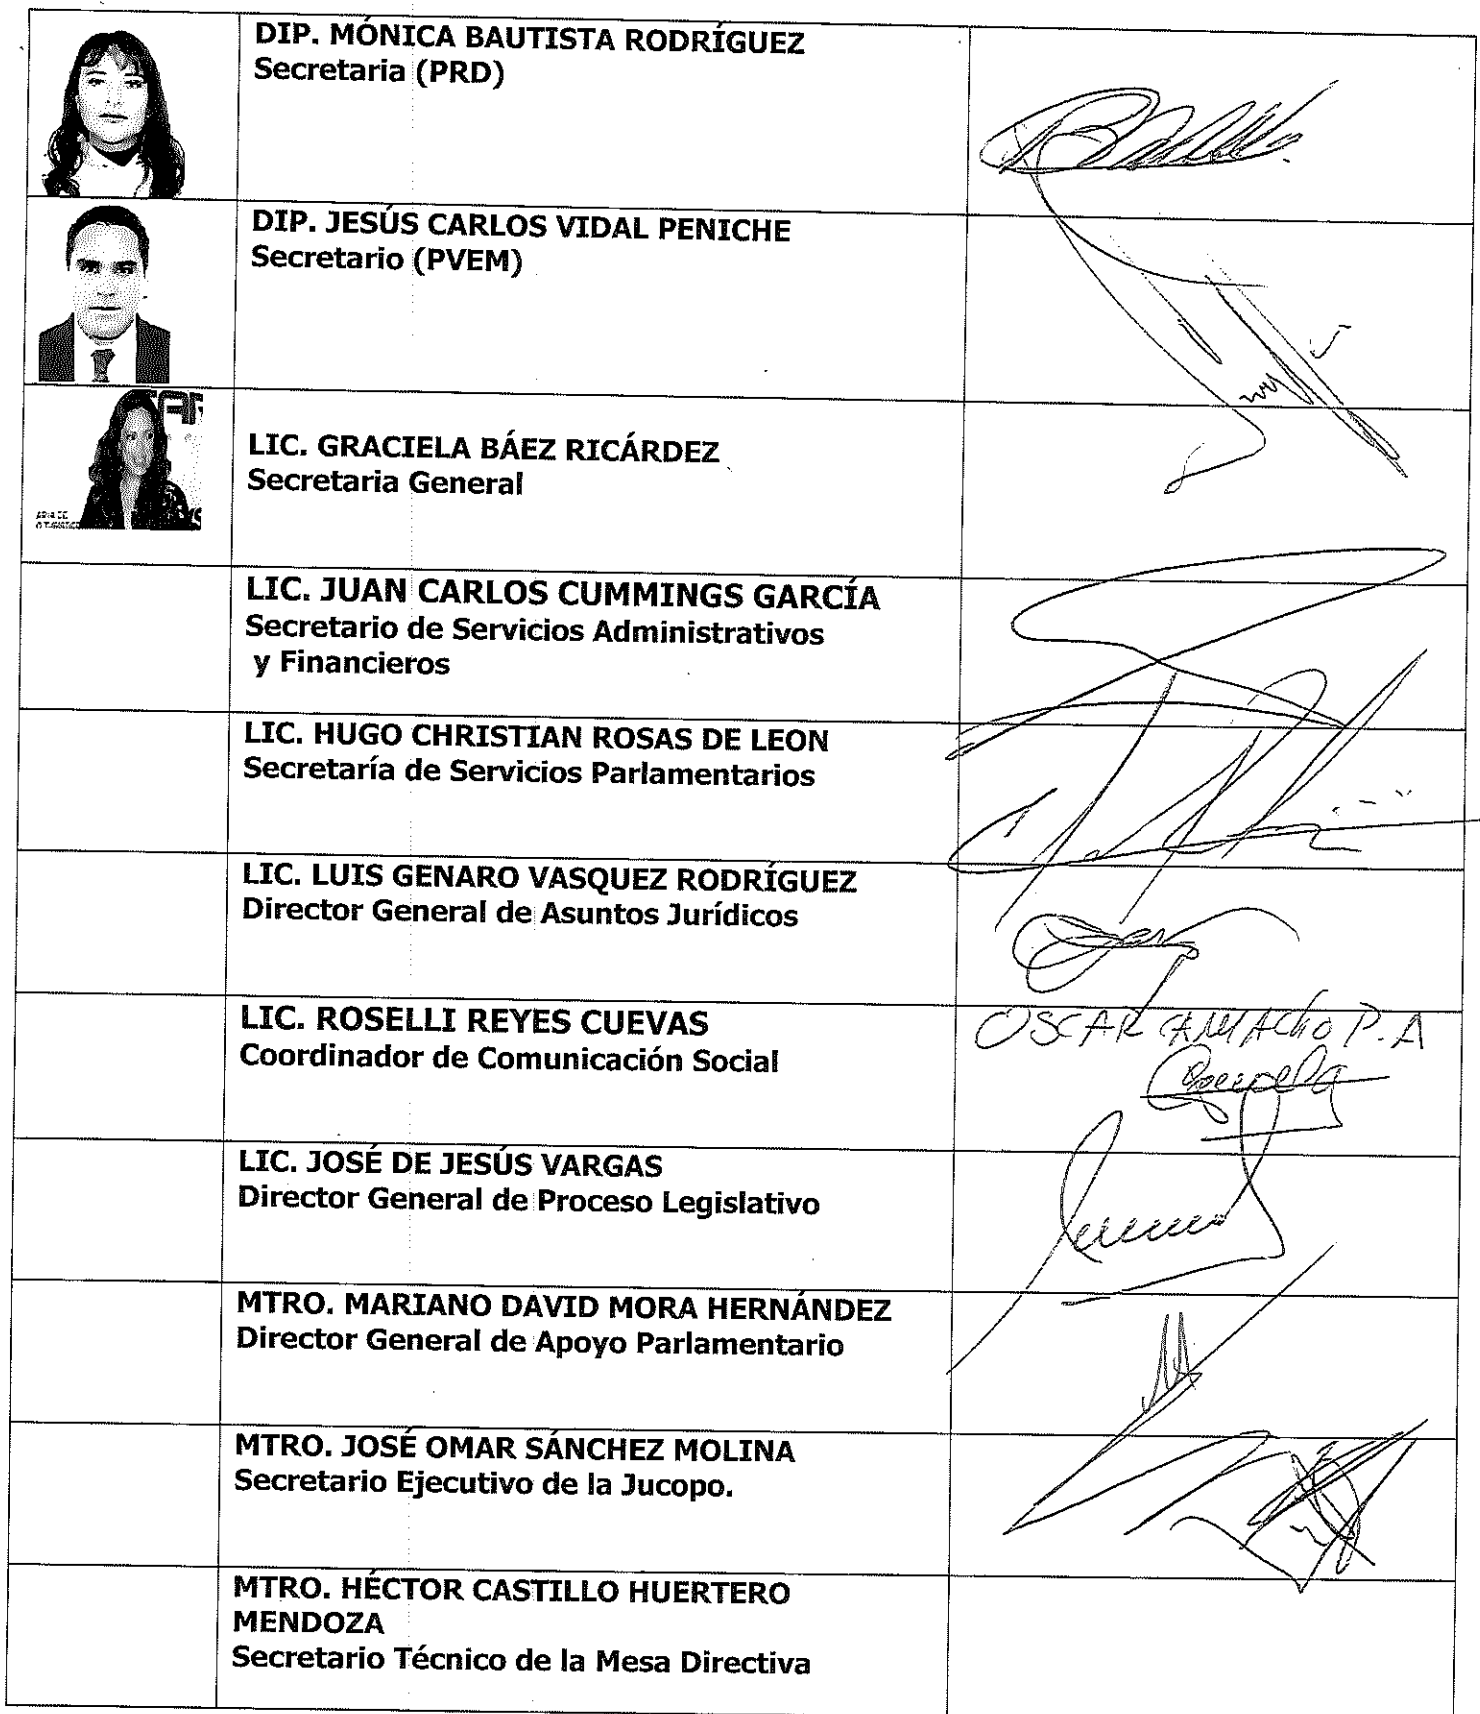 DIP. MÓNICA BAUTISTA RODRÍGUEZ
Secretaria (PRD)
DIP. JESÚS CARLOS VIDAL PENICHE
Secretario (PVEM)
LIC. GRACIELA BÁEZ RICÁRDEZ
Secretaria General
LIC. JUAN CARLOS CUMMINGS GARCÍA
Secretario de Servicios Administrativos
y Financieros
LIC. HUGO CHRISTIAN ROSAS DE LEON
Secretaría de Servicios Parlamentarios
LIC. LUIS GENARO VASQUEZ RODRÍGUEZ
Director General de Asuntos Jurídicos
LIC. ROSELLI REYES CUEVAS
Coordinador de Comunicación Social
OSCAR CAMACHO P.A
LIC. JOSÉ DE JESÚS VARGAS
Director General de Proceso Legislativo
MTRO. MARIANO DAVID MORA HERNÁNDEZ
Director General de Apoyo Parlamentario
MTRO. JOSÉ OMAR SÁNCHEZ MOLINA
Secretario Ejecutivo de la Jucopo.
MTRO. HÉCTOR CASTILLO HUERTERO
MENDOZA
Secretario Técnico de la Mesa Directiva